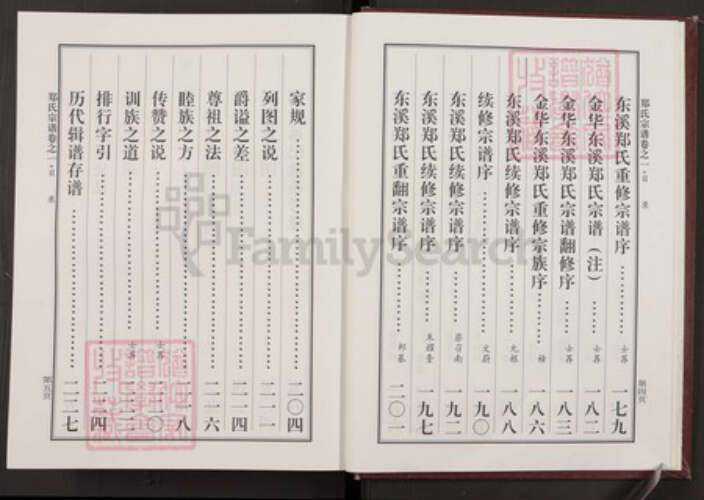 郑氏宗谱卷之一·目录
东溪郑氏重修宗谱序……………士荐 一七九
金华东溪郑氏宗谱(注)……………士荐 一八二
金华东溪郑氏宗谱翻修序……………士荐 一八三
金华东溪郑氏重修宗族序…………… 一八六
东溪郑氏续修宗谱序……………允根 一八八
续修宗谱序……………文蔚 一九〇
东溪郑氏续修宗谱序……………蔡召南 一九二
东溪郑氏续修宗谱序……………朱耀奎 一九七
东溪郑氏重翻宗谱序……………邦基 二〇一
第四页
郑氏宗谱卷之一·目录
家规……………二〇四
列图之说……………二一二
爵谥之差……………二一四
尊祖之法……………二一六
睦族之方……………二一八
传赞之说……………士荐
训族之道……………士荐
排行字引……………二二四
历代辑谱存谱……………二二七
第五页
FamilySearch